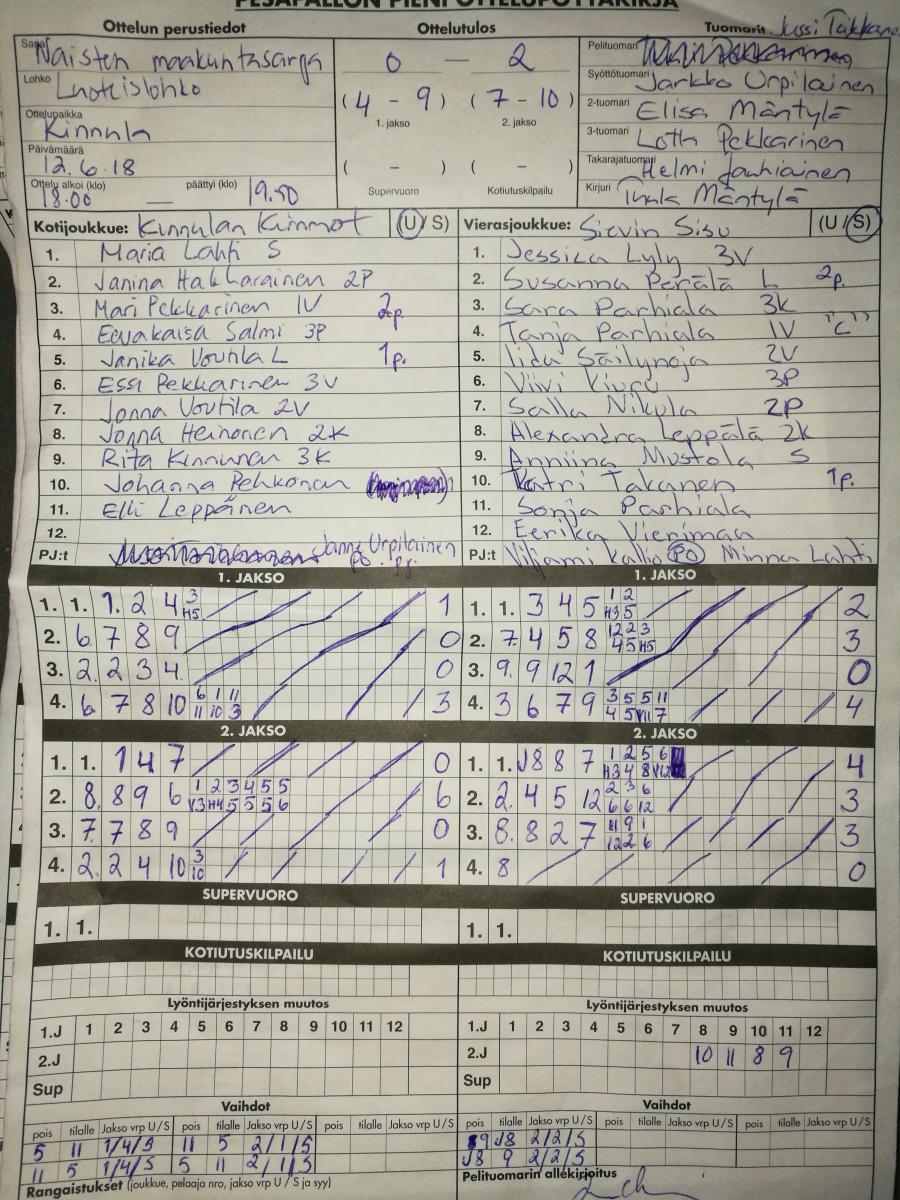 PESÄPALLON PIENI OTTELUPÖYTÄKIRJA
Ottelun perustiedot Ottelutulos Tuomarit Jussi Taikkano
Sarja Naisten maakuntasarja
Lohko Luoteislohko
Ottelupaikka Kinnula
Päivämäärä 12.6.18
Ottelu alkoi (klo) 18.00 — päättyi (klo) 19.50
0 — 2
(4 - 9) (7 - 10)
1. jakso 2. jakso
( - ) ( - )
Supervuoro Kotiutuskilpailu
Pelituomari
Syöttötuomari Jarkko Urpilainen
2-tuomari Elisa Mäntylä
3-tuomari Lotta Pekkarinen
Takarajatuomari Helmi Jauhiainen
Kirjuri Tuula Mäntylä
Kotijoukkue: Kinnulan Kiinnot (U/S)
1. Maria Lahti S
2. Janina Hakkarainen 2P
3. Mari Pekkarinen 1V 2p.
4. Eevakaisa Salmi 3P
5. Janika Voutila L 1p.
6. Essi Pekkarinen 3V
7. Jonna Voutila 2V
8. Jonna Heinonen 2K
9. Rita Kinnunen 3K
10. Johanna Pehkonen
11. Elli Leppänen
12.
PJ:t Janne Urpilainen
PO. pj.
Vierasjoukkue: Sievin Sisu (U/S)
1. Jessica Lyly 3V
2. Susanna Perälä L 2p.
3. Sara Parhiala 3K
4. Tanja Parhiala 1V "C"
5. Iidu Säilynoja 2V
6. Viivi Kiuru 3P
7. Salla Nikula 2P
8. Alexandra Leppälä 2K
9. Anniina Mustola S
10. Katri Takanen 1p.
11. Sonja Parhiala
12. Eerika Vierimaa
PJ:t Viljami Kallio PO Minna Lahti
1. JAKSO
1. 1. 1. 2 4 3 H5 1
2. 6. 7 8 9 0
3. 2. 2 3 4 0
4. 6. 7 8 10 6 1 11 3
11 10 3
1. JAKSO
1. 1. 3 4 5 1 2 2
H3 5
2. 7. 4 5 8 1 2 2 3 3
4 5 H5
3. 9. 9 12 1 0
4. 3 6 7 9 3 5 5 11 4
4 5 V11 7
2. JAKSO
1. 1. 1 4 7 0
2. 8. 8 9 6 1 2 3 4 5 5 6
V3 H4 5 5 5 6
3. 7. 7 8 9 0
4. 2. 2 4 10 3 1
10
2. JAKSO
1. 1. J8 8 7 1 2 5 6 4
H3 4 8 V12
2. 2. 4 5 12 2 3 6 3
6 6 12
3. 8. 8 2 7 11 9 1 3
12 2 6
4. 8 0
SUPERVUORO
1. 1.
SUPERVUORO
1. 1.
KOTIUTUSKILPAILU
KOTIUTUSKILPAILU
Lyöntijärjestyksen muutos
1.J 1 2 3 4 5 6 7 8 9 10 11 12
2.J
Sup
Lyöntijärjestyksen muutos
1.J 1 2 3 4 5 6 7 8 9 10 11 12
2.J 10 11 8 9
Sup
Vaihdot
pois tilalle Jakso vrp U / S pois tilalle Jakso vrp U / S pois tilalle Jakso vrp U / S
5 11 1/4/S 11 5 2/1/S
11 5 1/4/S 5 11 2/1/S
Vaihdot
pois tilalle Jakso vrp U / S pois tilalle Jakso vrp U / S pois tilalle Jakso vrp U / S
9 J8 2/2/S
J8 9 2/2/S
Rangaistukset (joukkue, pelaaja nro, jakso vrp U / S ja syy)
Pelituomarin allekirjoitus